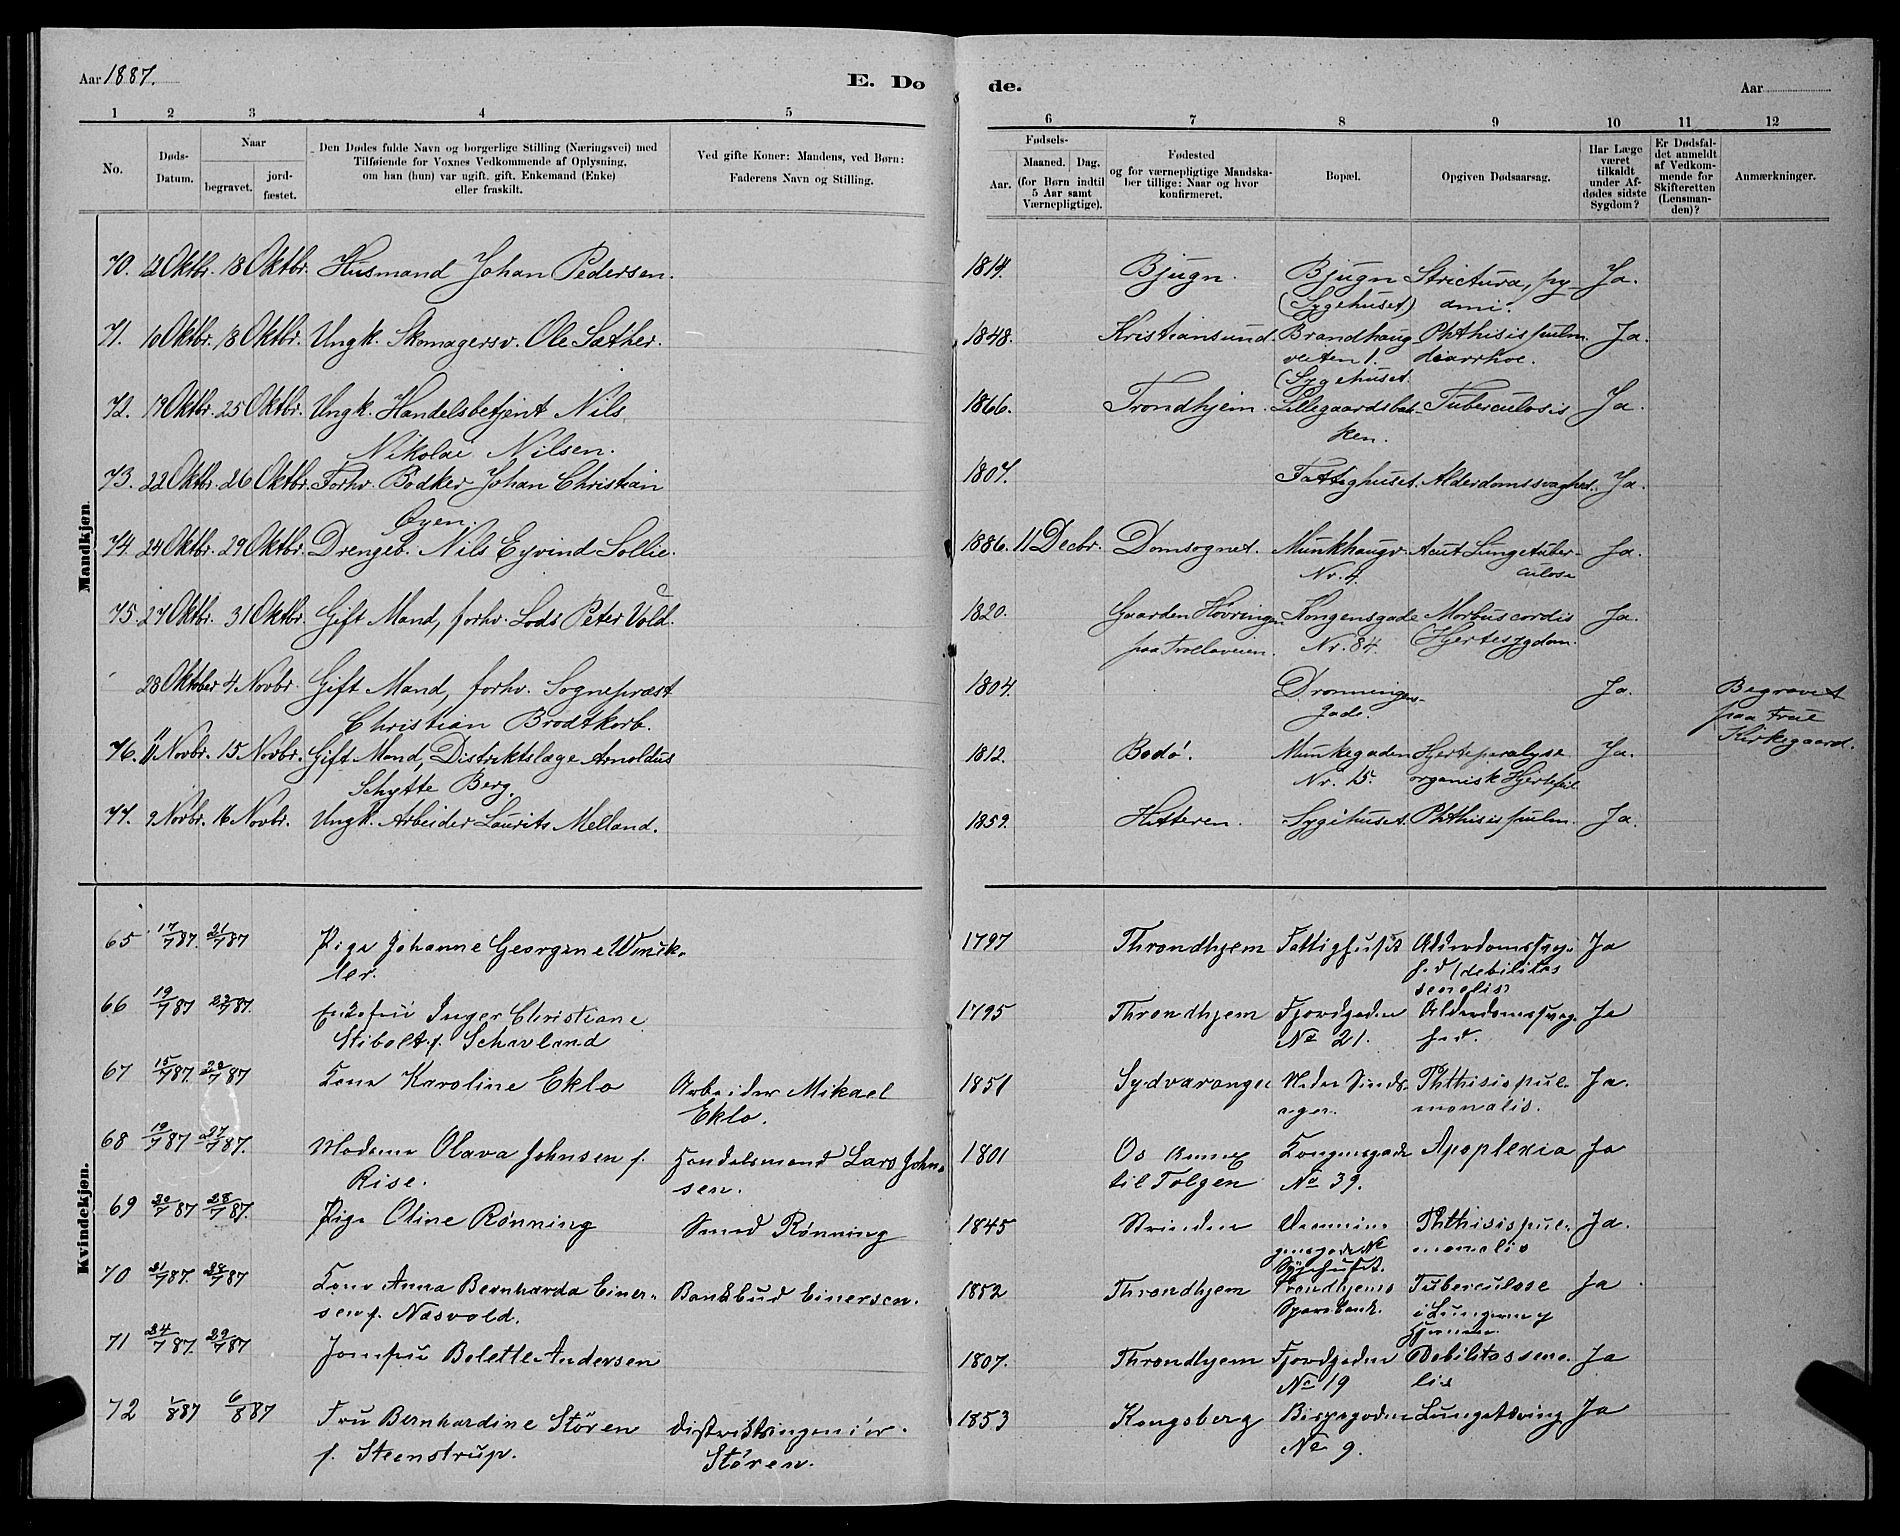 Aar 1887.
E. Dø
de.
Aar
1 2 3 4 5
6 7 8 9 10 11 12
No.
Døds-Datum.
Naar
begravet.
jord-fæstet.
Den Dødes fulde Navn og borgerlige Stilling (Næringsvei) med
Tilføiende for Voxnes Vedkommende af Oplysning,
om han (hun) var ugift. gift. Enkemand (Enke)
eller fraskilt.
Ved gifte Koner: Mandens, ved Børn:
Faderens Navn og Stilling.
Fødsels-
Aar.
Maaned. Dag.
(for Børn indtil
5 Aar samt
Værnepligtige).
Fødested
og for værnepligtige Mandska-
ber tillige: Naar og hvor
konfirmeret.
Bopæl.
Opgiven Dødsaarsag.
Har Læge
været
tilkaldt
under Af-
dødes sidste
Sygdom?
Er Dødsfal-
det anmeldt
af Vedkom-
mende for
Skifteretten
(Lensman-
den)?
Anmærkninger.
Mandkjøn.
70. 12 Oktbr. 18 Oktbr. Husmand Johan Pedersen. 1814. Bjugn. Bjugn Strictura, py- Ja.
(Sygehuset) ami.
71. 10 Oktbr. 18 Oktbr. Ungk. Skomagersv. Ole Sæther. 1848. Kristiansund. Brandhaug- Phthisis pulm. Ja.
veiten 1. diarrhoe.
(Sygehuset.
72. 19 Oktbr. 25 Oktbr. Ungk. Handelsbetjent Nils 1866. Trondhjem. Lillegaardsbak- Tuberculosis Ja.
Nikolai Nilsen. ken.
73. 22 Oktbr. 26 Oktbr. Forhv. Bødker Johan Christian 1807. Fattighuset. Alderdomssvaghed. Ja.
Øyen.
74. 24 Oktbr. 29 Oktbr. Drengeb. Nils Eyvind Sollie. 1886. 11 Decbr. Domsognet. Munkhaugv. Acut Lungetuber- Ja.
Nr. 4. culose
75. 27 Oktbr. 31 Oktbr. Gift Mand, forhv. Lods Peter Vold. 1820. Gaarden Høvringen Kongensgade Morbus cordis Ja.
paa Trollaveien. Nr. 84. (Hjertesygdom.
28 Oktober 4 Novbr. Gift Mand, forhv. Sogneprest 1804. Dronningens- Ja. Begravet
Christian Brodtkorb. gade. paa Frue
Kirkegaard.
76. 11 Novbr. 15 Novbr. Gift Mand, Distriktslæge Arnoldus 1812. Bodø. Munkegaden Hjerteparalyse Ja.
Schytte Berg. Nr. 15. organisk Hjertefeil
77. 9 Novbr. 16 Novbr. Ungk. Arbeider Laurits Melland. 1859. Hitteren. Sygehuset. Phthisis pulm. Ja.
Kvindekjøn.
65 17/7 87. 21/7 87 Pige Johanne Georgine Winck- 1797 Throndhjem Fattighuset Alderdomssvag- Ja
ler. hed (debilitas
senelis)
66 19/7 87 23/7 87. Enkefru Inger Christiane 1795 Throndhjem Fjordgaden Alderdomssvag- Ja
Stibolt f. Schavland No 21. hed.
67 15/7 87. 22/7 87 Kone Karoline Eklo Arbeider Mikael 1851 Sydvaranger Phthisis pul- Ja.
Eklo. monalis.
68 19/7 87 27/7 87. Madame Olava Johnsen f. Handelsmand Lars John- 1801 Os Annex Kongensgade Apoplexia Ja
Rise. sen. til Tolgen No 39.
69 20/7 87 28/7 87. Pige Oline Rønning Smed Rønning 1845 Strinden Dronnin- Phthisis pul- Ja.
gensgade No monalis
Sygehuset.
70 21/7 87. 28/7 87 Kone Anna Bernharda Einer- Bankbud Einersen. 1852 Throndhjem Trondhjems Tuberculose Ja
sen f. Næsvold. Sparebank. i Lungerne og
Hjernen.
71 24/7 87. 29/7 87 Jomfru Bolette Andersen 1807. Throndhjem Fjordgaden Debilitas sene- Ja
No 19 lis
72 1/8 87 6/8 87 Fru Bernhardine Stören Distriktsingeniør 1853 Kongsberg Bispegaden Lungetæring Ja
f. Steenstrup. Stören. No 9.